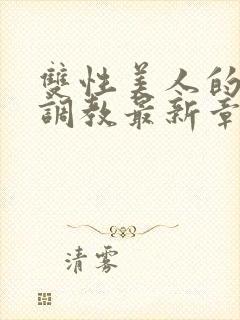 雙性美人的
調教最新章
清雾